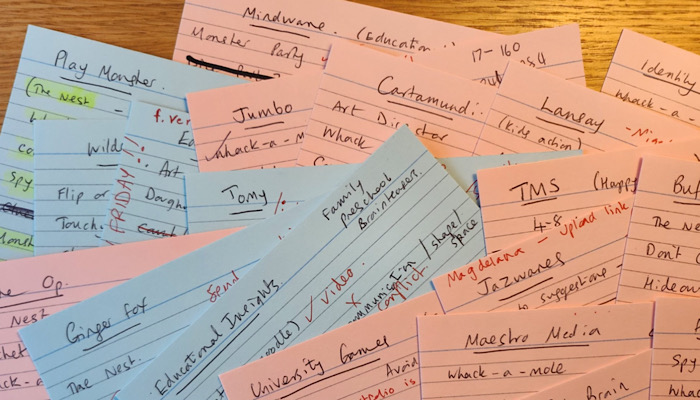 Mindware. (Education
Monster Party
17-160
Play Monster.
(The Nest
Spy
Identity
whack-a-
Jumbo
✓ whack-a-M
Cartamundi
Art Director
Whack
Lansay
(kids action)
Wilde
Flip or
Touch
FRIDAY!
f.ver
Art
Dough
Tomy
Family
Preschool
Brainteaser.
/shape/
Space
conflict
✓ video.
X
TMS (Happy
4-8
Magdelana - Upload link
Jazwanes
to suggestions -
Buf
The Ne
Don't (
Hideou
Op.
Nest
Ginger Fox
The Nest.
Send
Educational Insights.
University Games
Avoid
is
Maestro Media
whack-a-mole
Brain
Spy
Wha